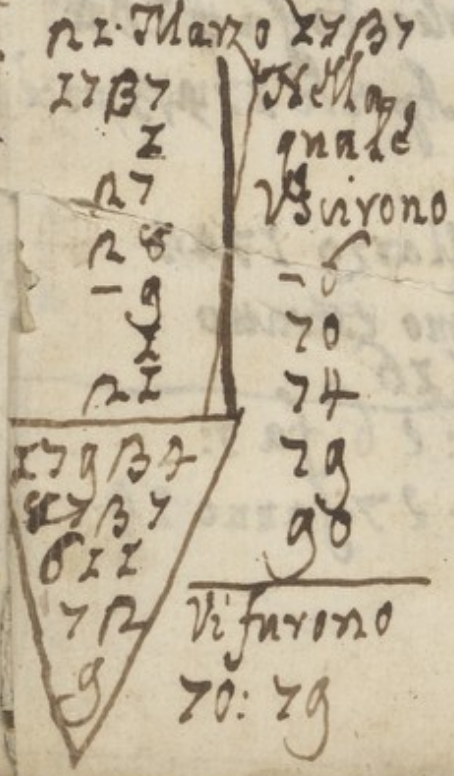 21. Marzo 1737
1737
1
27
28
- 9
1
21
17934
8737
611
72
9
Nella
quale
Uscirono
- 6
70
74
79
90
Vi furono
70: 79